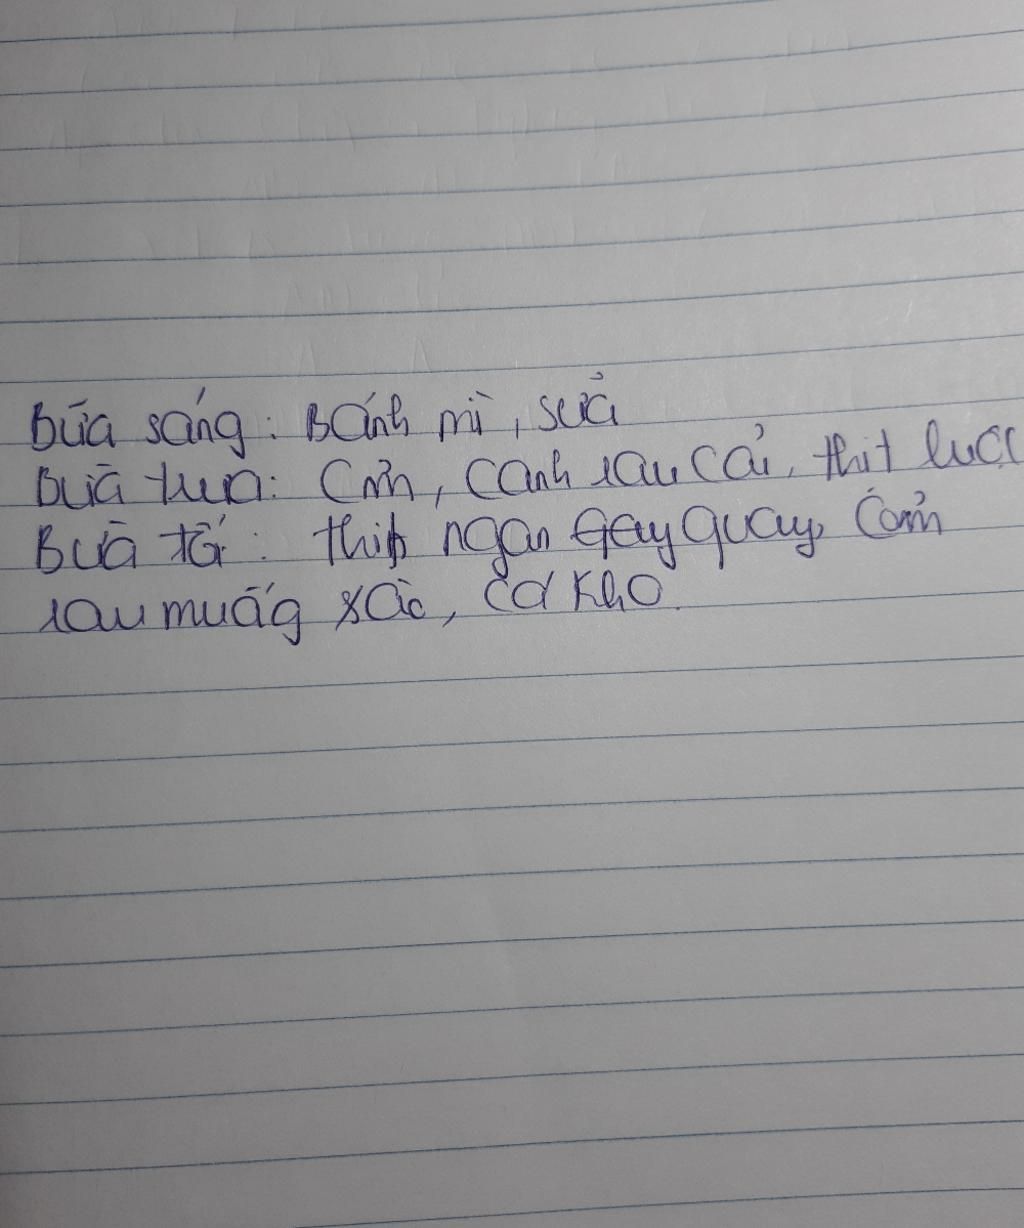 Bữa sáng: Bánh mì, sữa
Bữa trưa: Cơm, canh rau cải, thịt luộc
Bữa tối: thịt ngan quay, Cơm
rau muống xào, cá kho.